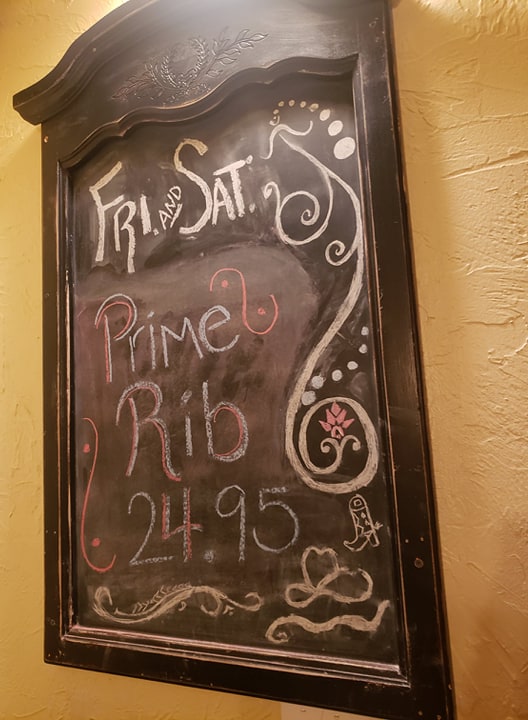 FRI. AND SAT.
Prime
Rib
24.95